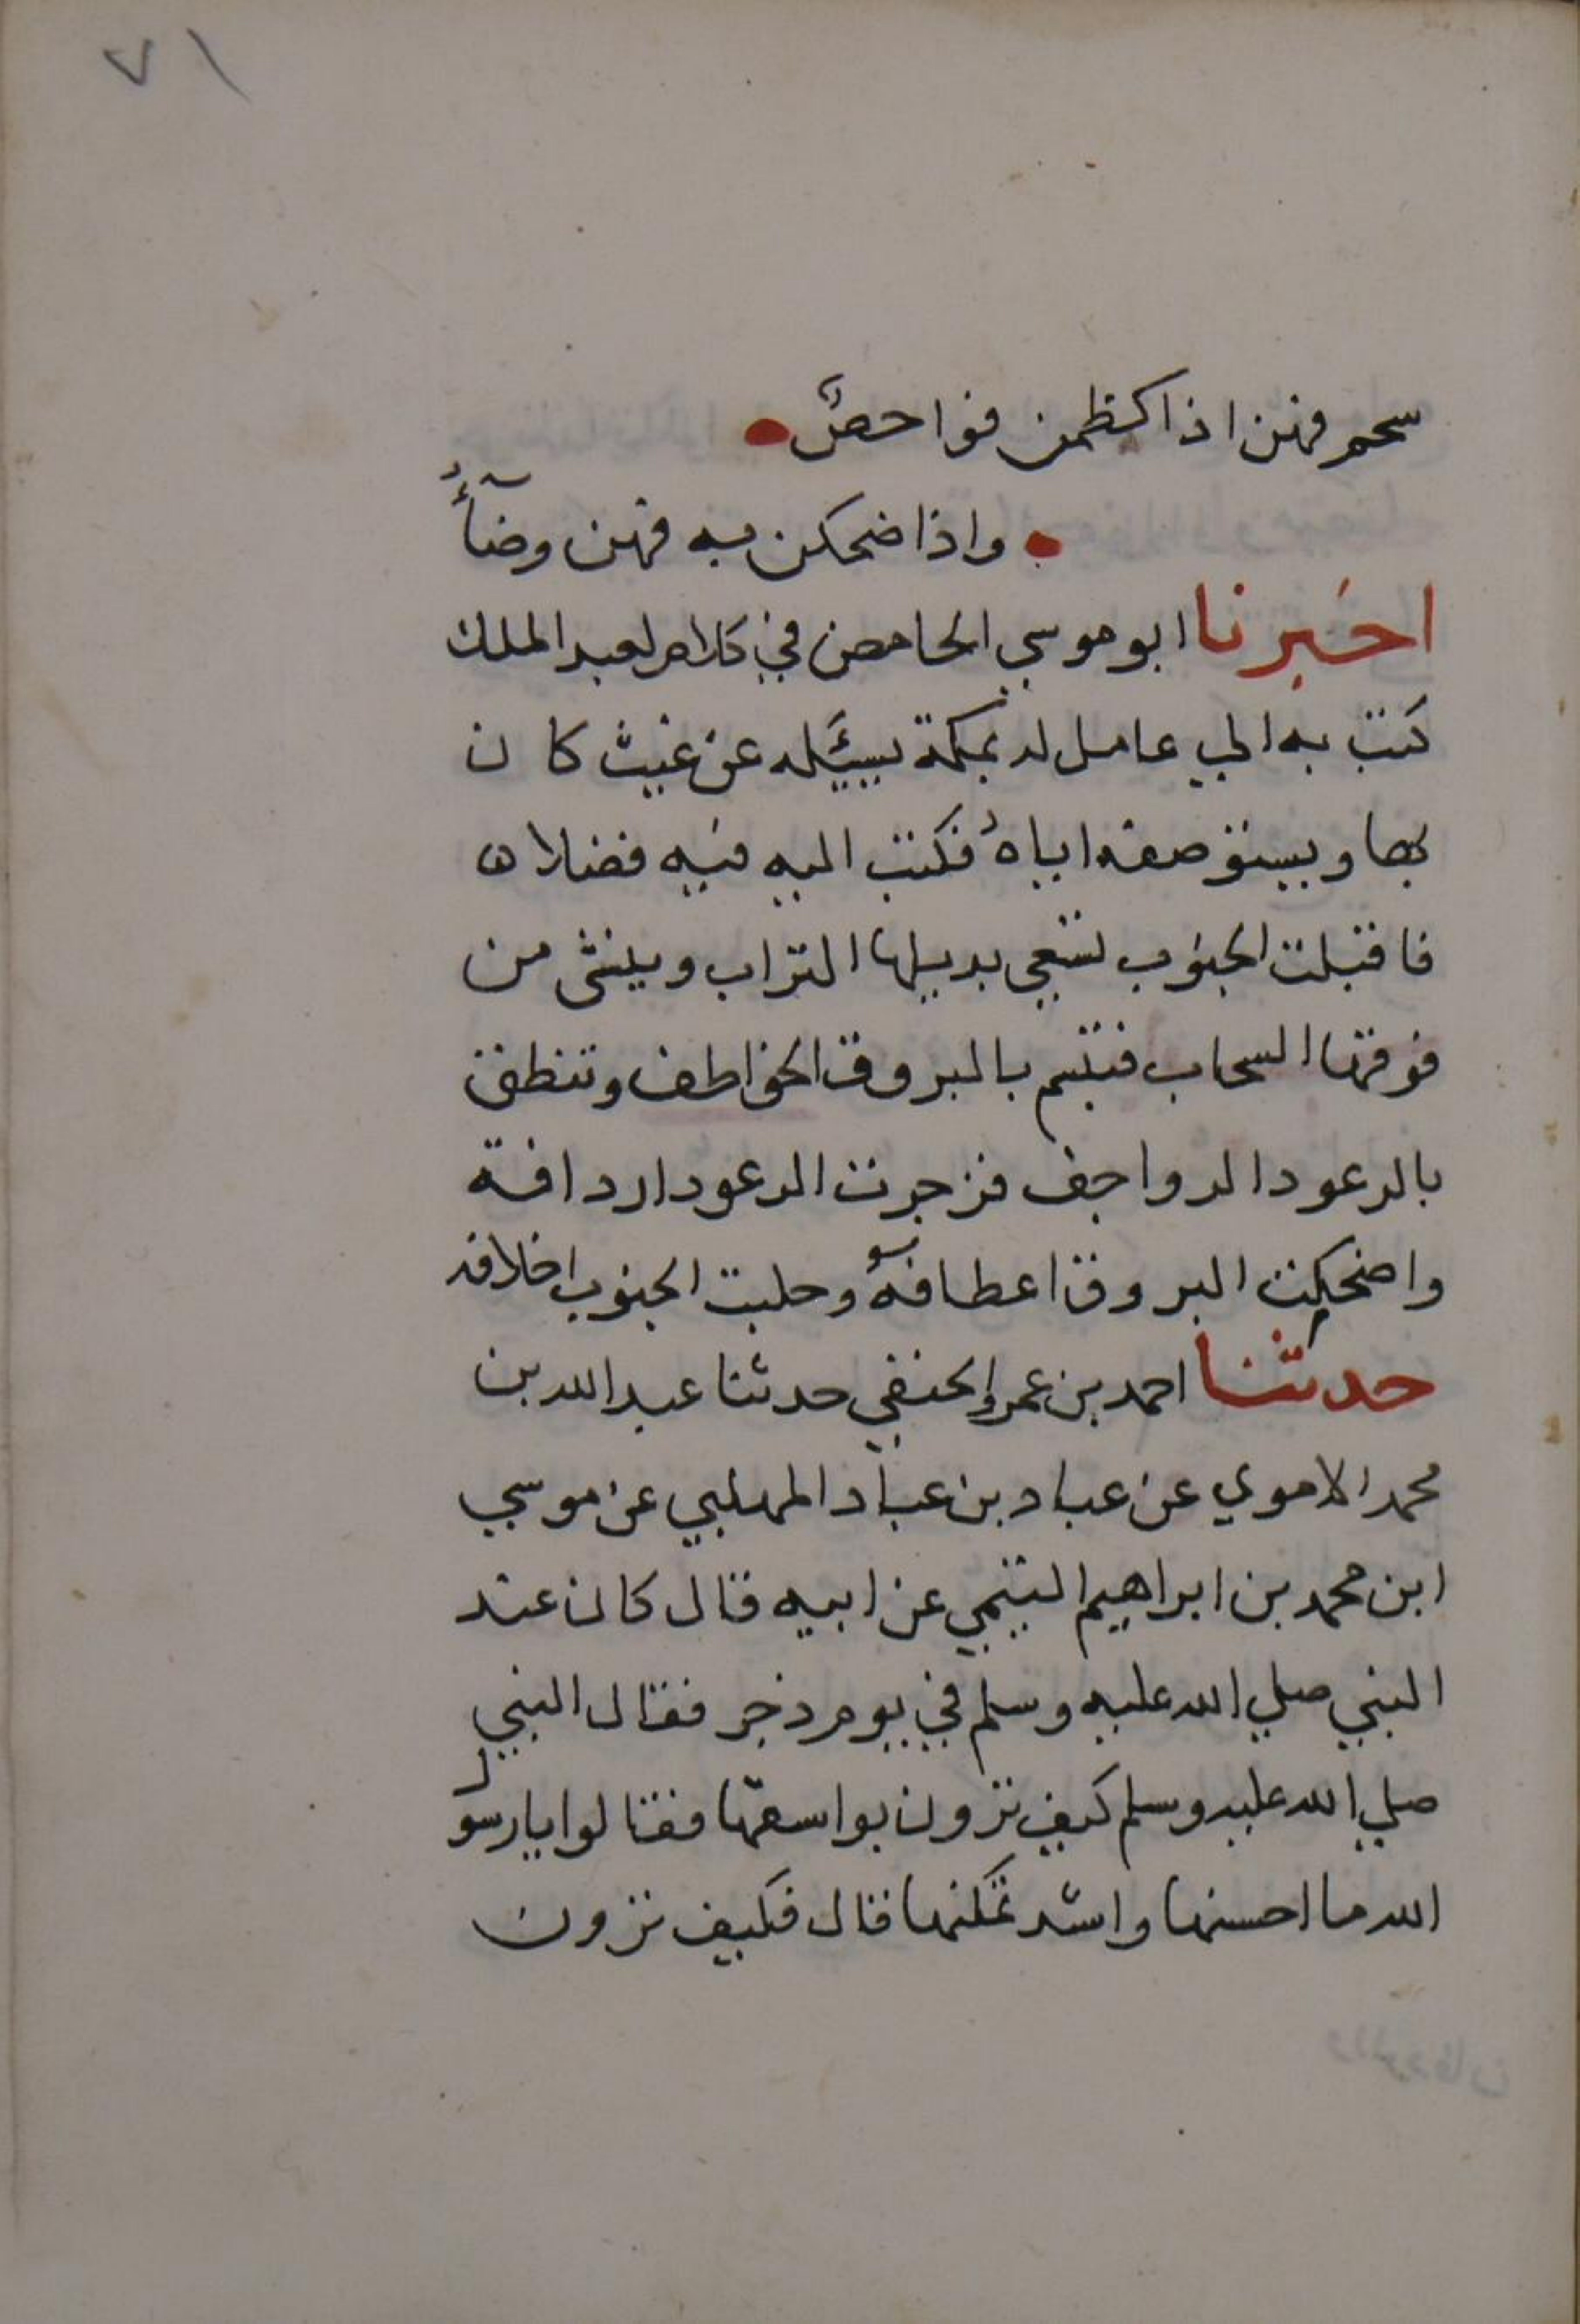 ٧١
سحم فهن اذا كظمن فواحم
واذا ضحكن به فهن وضآءُ
اخبرنا ابو موسي الحامض في كلام لعبد الملك
كتب به الي عامل له بمكة يسئله عن غيث كان
بها ويستوصفه اياهُ فكتب اليه فيه فضلا
فاقبلت الجنوب تسعي بديلها التراب ويلثى من
فوقها السحاب فتبتم بالبروق الخواطف وتنطق
بالرعود الرواجف فزجرت الرعود اردافه
واضحكت البروق اعطافهُ وحلبت الجنوب اخلافه
حدثنا احمد بن عمرو الحنفي حدثنا عبد الله بن
محمد الاموي عن عباد بن عباد المهلبي عن موسي
ابن محمد بن ابراهيم التيمي عن ابيه قال كان عند
النبي صلي الله عليه وسلم في يوم دجن فقال النبي
صلي الله عليه وسلم كيف ترون بواسقها فقالوا يا رسول
الله ما احسنها واشد تمكنها قال فكيف ترون